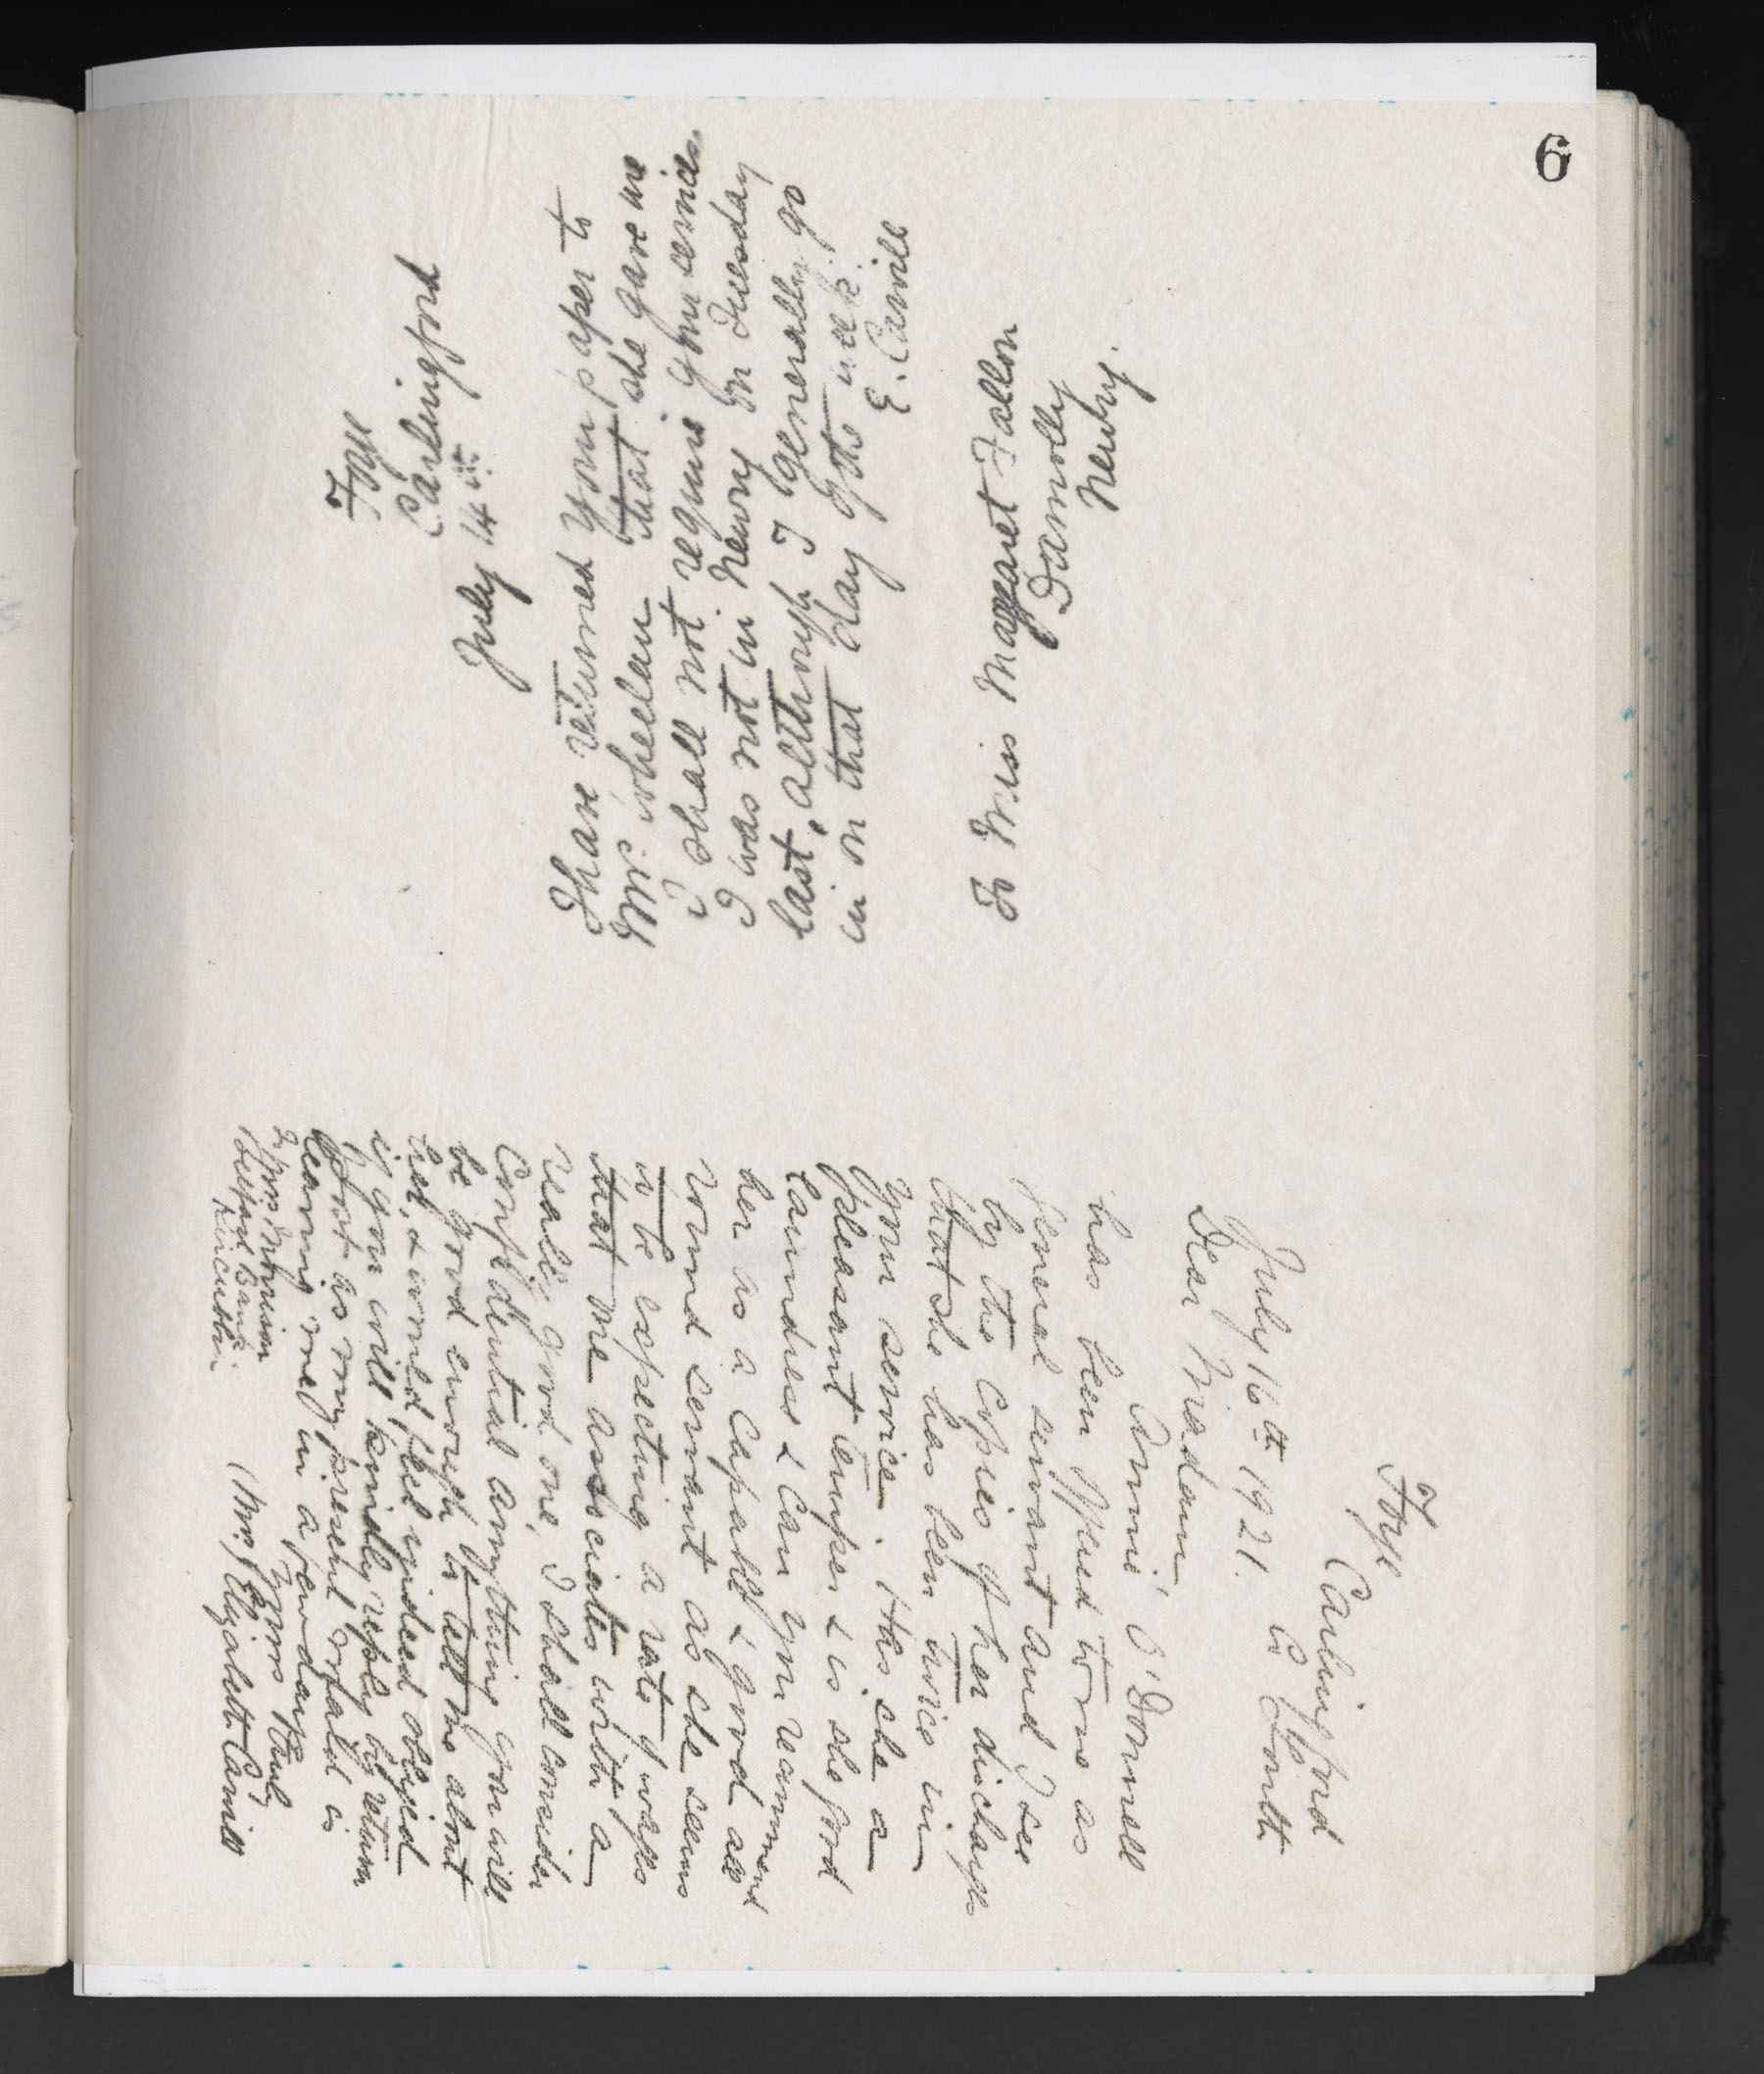 6
Foyl
Carlingford
July 14th
I have returned your paper to
Mrs. Wheelan that she gave me
I shall not require your services.
I was not in Newry on Tuesday
last, although I generally go
in on that day of the week.
E. Carvill
To Miss Margaret Fallon
Damolly
Newry.
Foyl
Carlingford
Co Louth
July 16th 1921.
Dear Madam
Annie O'Donnell
has been offered to me as
general servant and I see
by the copies of her discharges
that she has been twice in
your service. Has she a
pleasant temper & is she good
laundress & can you recommend
her as a capable & good all
round servant as she seems
to be expecting a rate of wages
that one associates with a
really good one, I shall consider
confidential anything you will
be good enough to tell me about
her, & would feel indeed obliged
if you will kindly reply by return
of post as my present is
leaving me in a few days
Yours truly
(Mrs) Elizabeth Carvill
To Mrs Morrison
Ulster Bank